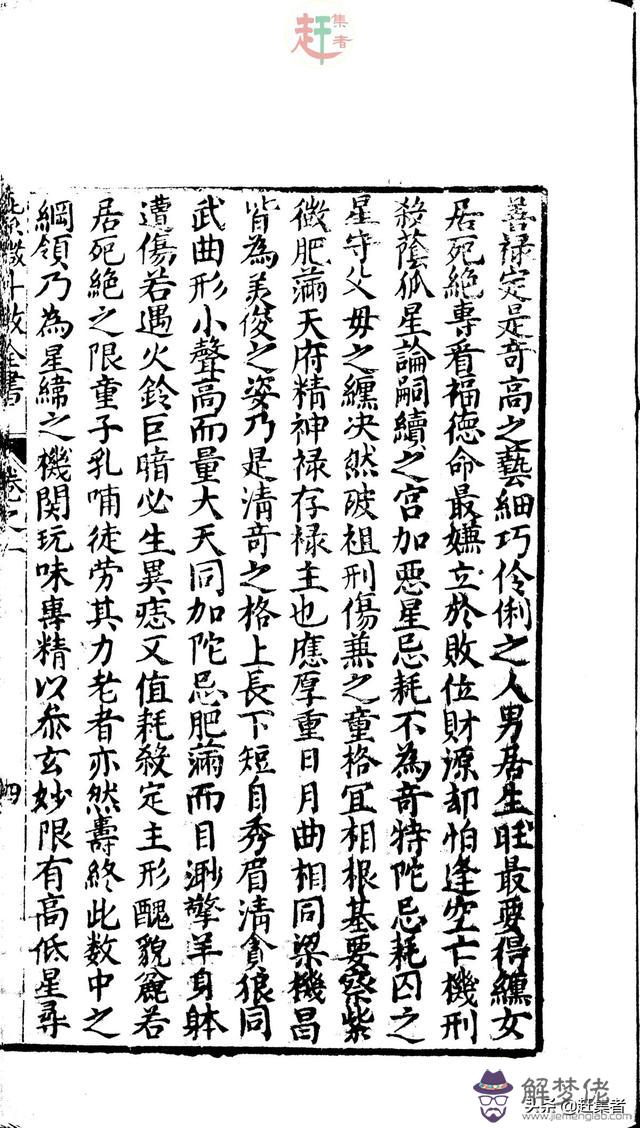 赶集者
善祿定是奇高之藝細巧伶俐之人男居生旺最要得纏女
居死絶專看福德命最嫌立於敗位財源却怕逢空亡機刑
殺蔭狐星論嗣續之宮加惡星忌耗不為奇特陀忌耗囚之
星守父母之纏决然破祖刑傷兼之童格宜相根基要察紫
微肥滿天府精神禄存禄主也應厚重日月曲相同梁機昌
皆為美俊之姿乃是清奇之格上長下短目秀眉清貪狼同
武曲形小聲高而量大天同加陀忌肥滿而目渺擎羊身躰
遭傷若遇火鈴巨暗必生異痣又值耗殺定主形醜貌麄若
居死絶之限童子乳哺徒劳其力老者亦然壽終此数中之
綱領乃為星緯之機関玩味專精以叅玄妙限有高低星尋
紫微斗数全書
卷之一
四
解梦佬
www.jiemenglao.com
头条@赶集者